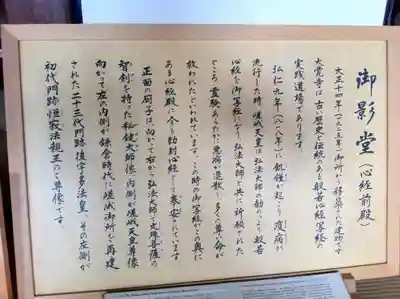 御影堂（心経前殿）
大正十四年（一九二五年）御所から移築された建物です
大覚寺は古い歴史と伝統のある般若心経写経の
実践道場であります。
弘仁九年（八一八年）に飢饉が起こり疫病が
流行した時、嵯峨天皇は弘法大師の勧めにより般若
心経を御写経になり、弘法大師と共に祈願された
ところ、霊験あらたかに悪病が退散し、多くの尊い命が
救われたといわれています。この時の御写経がこの奥に
ある心経殿に今も勅封心経として奉安されています
正面の厨子に向かって右から弘法大師と文殊菩薩の
智剣を持った秘鍵大師像、内側が嵯峨天皇尊像
向かって左の内側が鎌倉時代に嵯峨御所を再建
された二十三代門跡後宇多法皇、その左側が
初代門跡恒寂法親王のご尊像です。